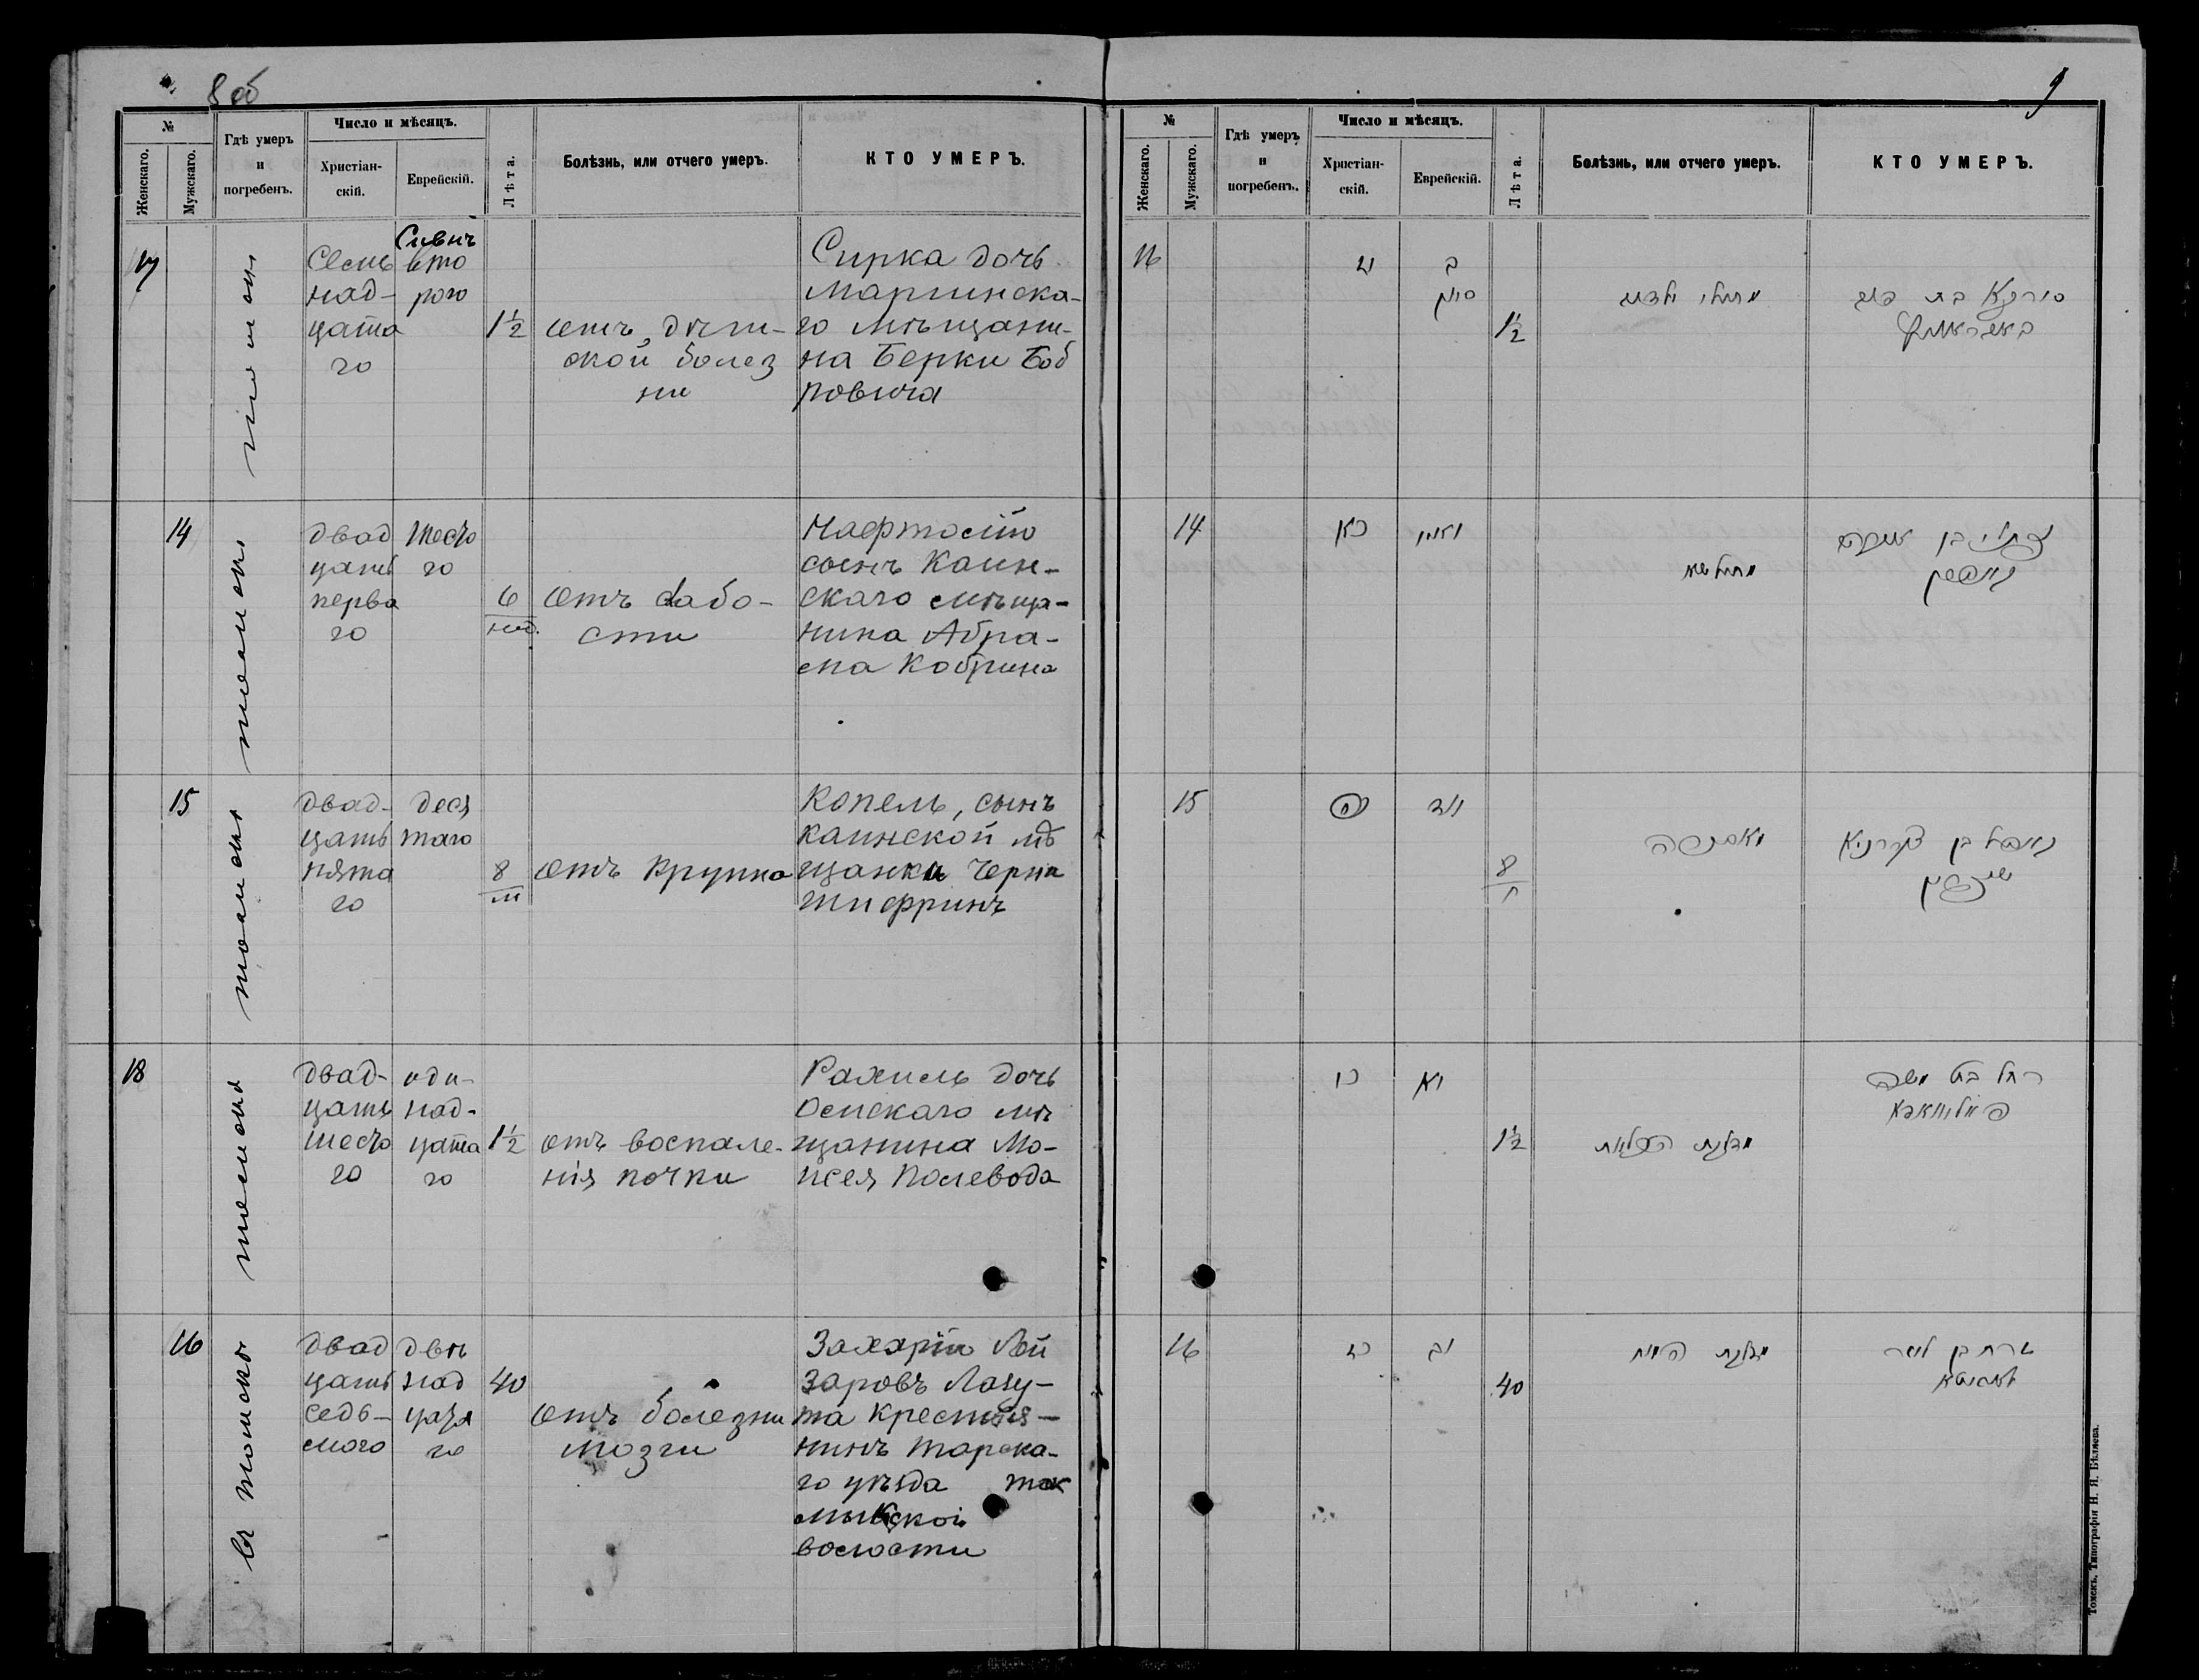 8 об
№
Женскаго.
Мужскаго.
Гдѣ умеръ
и
погребенъ.
Число и мѣсяцъ.
Христіан-
скій.
Еврейскій.
Лѣта.
Болѣзнь, или отчего умеръ.
КТО УМЕРЪ.
17
Семь
над-
цата
го
Сивнъ
вто
рого
1½
отъ дѣти-
ской болез
ни
Сирка дочь
Мариинска-
го мѣщани-
на Берки Боб
ровича
14
томскъ
двад
цать
перва
го
шесто
го
6
нед.
отъ слабо-
сти
Нафтолій
сынъ Каин-
скаго мѣща-
нина Абра-
ма Кобрина
15
томскъ
двад-
цать
пята
го
деся
таго
8
м
отъ крупна
Копель, сынъ
каинской мѣ
щанки Черна
Шифринъ
18
томскъ
двад-
цать
шесто
го
оди-
над-
цата
го
1½
отъ воспале-
нія почки
Рахиль дочь
Омскаго мѣ
щанина Мо-
исея Полевода
16
въ томскъ
двад
цать
седь-
мого
двѣ
над
цата
го
40
отъ болезни
мозги
Захарій Лей
заровъ Лазу-
та крестья-
нинъ Тарска-
го уѣзда
ской
волости
9
№
Женскаго.
Мужскаго.
Гдѣ умеръ
и
погребенъ.
Число и мѣсяцъ.
Христіан-
скій.
Еврейскій.
Лѣта.
Болѣзнь, или отчего умеръ.
КТО УМЕРЪ.
16
יז
ב
סיון
1½
מחלי ילדים
סירקא בת
14
כא
מחלשה
נפתלי בן
קאברין
15
כה
8
ח
קאפל בן
שיפרין
כו
יא
1½
מדלקת הכליות
רחל בת משה
פאליוואדא
16
כז
יב
40
מדלקת המוח
זרח בן לייזר
לאזוטא
Томскъ. Типографія Н. Я. Бѣляева.